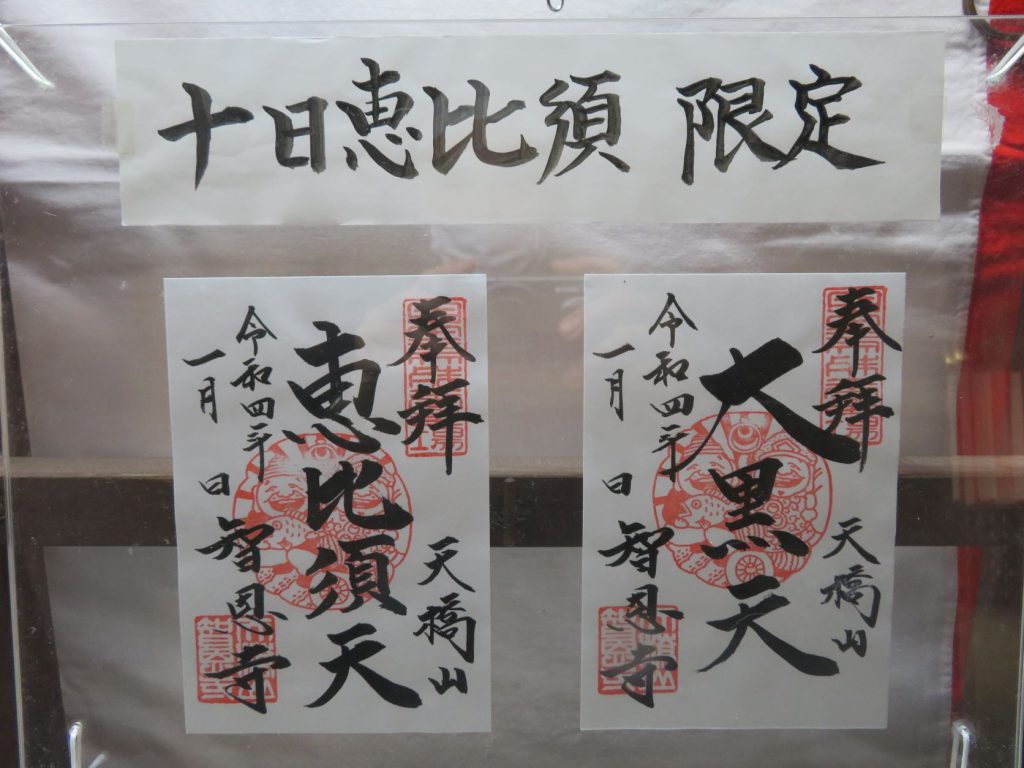 十日恵比須 限定
奉拝
天橋山
恵比須天
令和四年
一月 日
智恩寺
奉拝
天橋山
大黒天
令和四年
一月 日
智恩寺